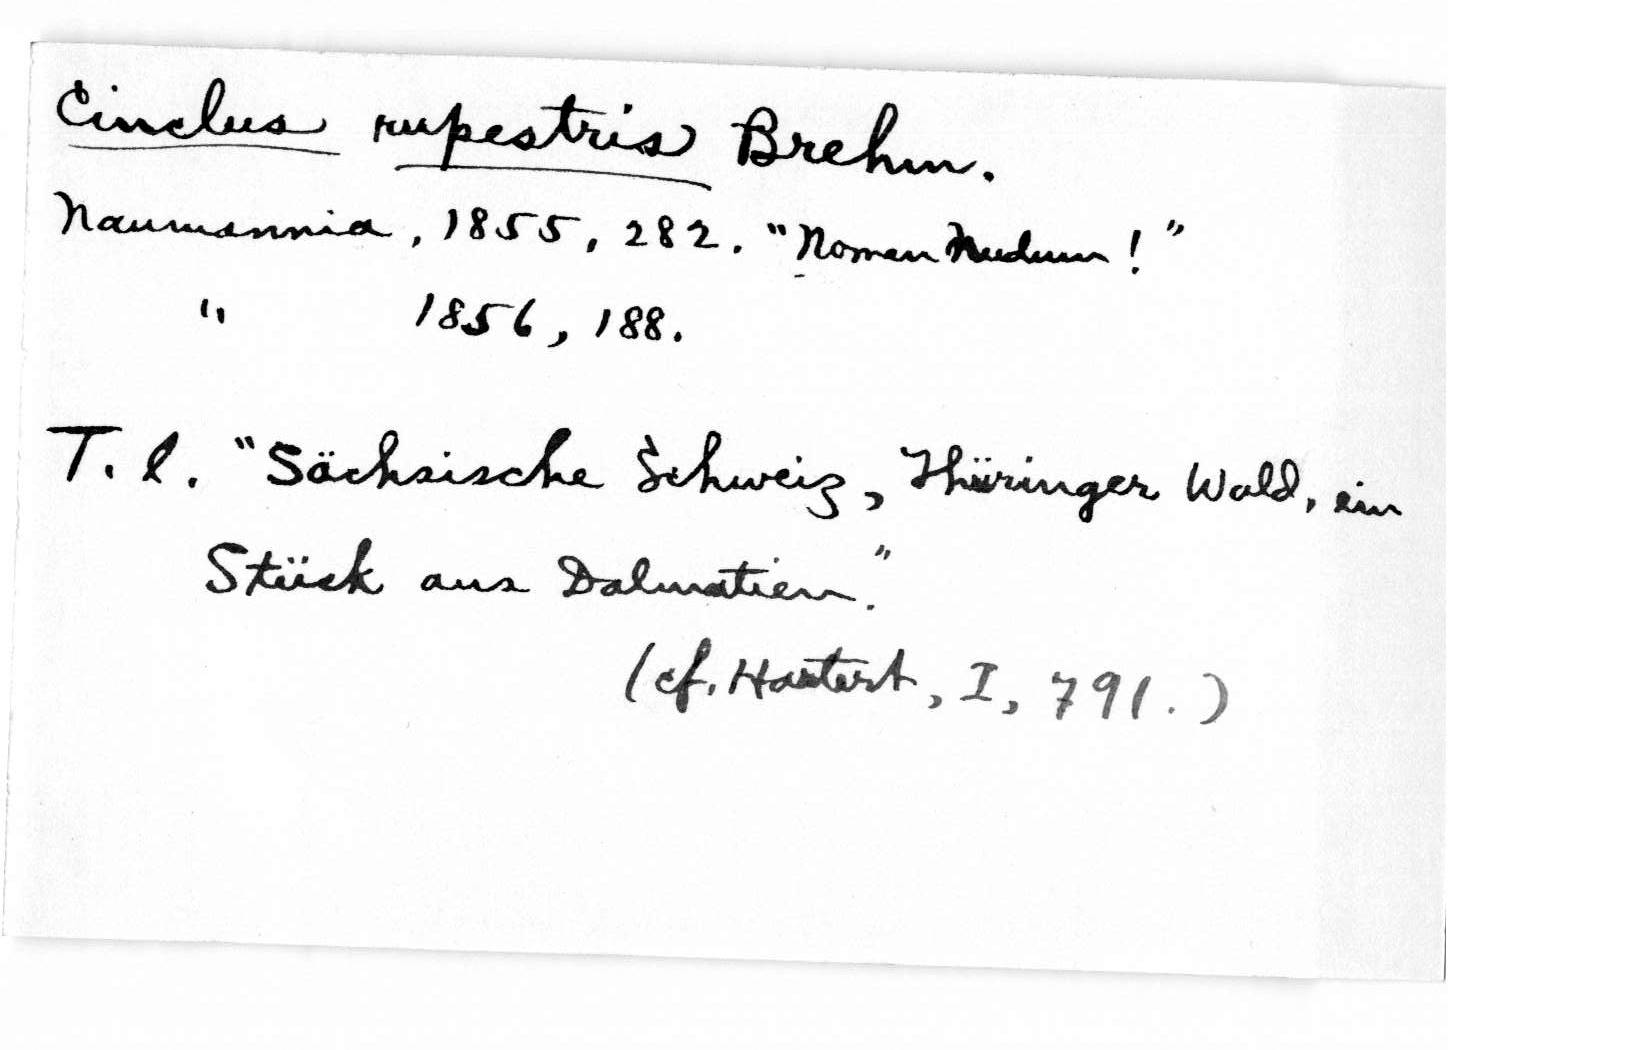 Cinclus rupestris Brehm.
Naumannia, 1855, 282. "Nomen Nudum!"
" 1856, 188.
T. l. "Sächsische Schweiz, Thüringer Wald, ein
Stück aus Dalmatien."
(cf. Hartert, I, 791.)